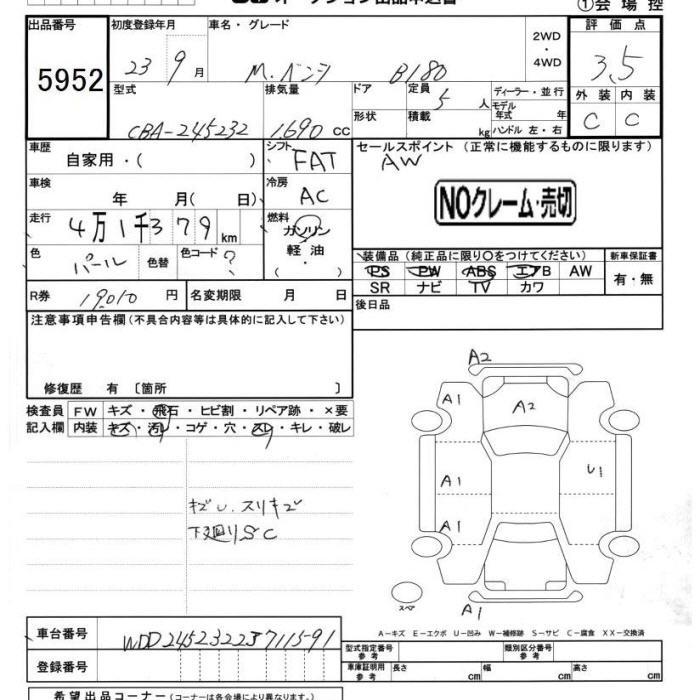 オークション出品申込書
①会場控
出品番号
5952
初度登録年月
23 9月
車名・グレード
M.ベンツ B180
2WD
・
4WD
評価点
3.5
外装 内装
C C
型式
CBA-245232
排気量
1690 cc
ドア
形状
定員
5人
積載
kg
ディーラー・並行
モデル年式 年
ハンドル 左・右
車歴
自家用・( )
シフト
FAT
セールスポイント (正常に機能するものに限ります)
AW
NOクレーム・売切
車検
年 月( 日)
冷房
AC
走行
4万1千379 km
燃料
ガソリン
軽油・
( )
色
パール
色替
色コード
?
装備品 (純正品に限り〇をつけてください)
PS PW ABS エアB AW
SR ナビ TV カワ
新車保証書
有・無
R券
19010 円
名変期限 月 日
後日品
注意事項申告欄 (不具合内容等は具体的に記入して下さい)
修復歴 有 〔箇所 〕
検査員
記入欄
FW キズ・飛石・ヒビ割・リペア跡・×要
内装 キズ・汚レ・コゲ・穴・スレ・キレ・破レ
キズU、スリキズ
下廻りSC
A2
A1
A2
A1
U1
A1
A1
スペア
A−キズ E−エクボ U−凹み W−補修跡 S−サビ C−腐食 XX−交換済
車台番号
WDD2452322J7115-91
登録番号
型式指定番号
参考
類別区分番号
参考
車庫証明用
参考
長さ cm
幅 cm
高さ cm
希望出品コーナー (コーナーは各会場により異なります。)